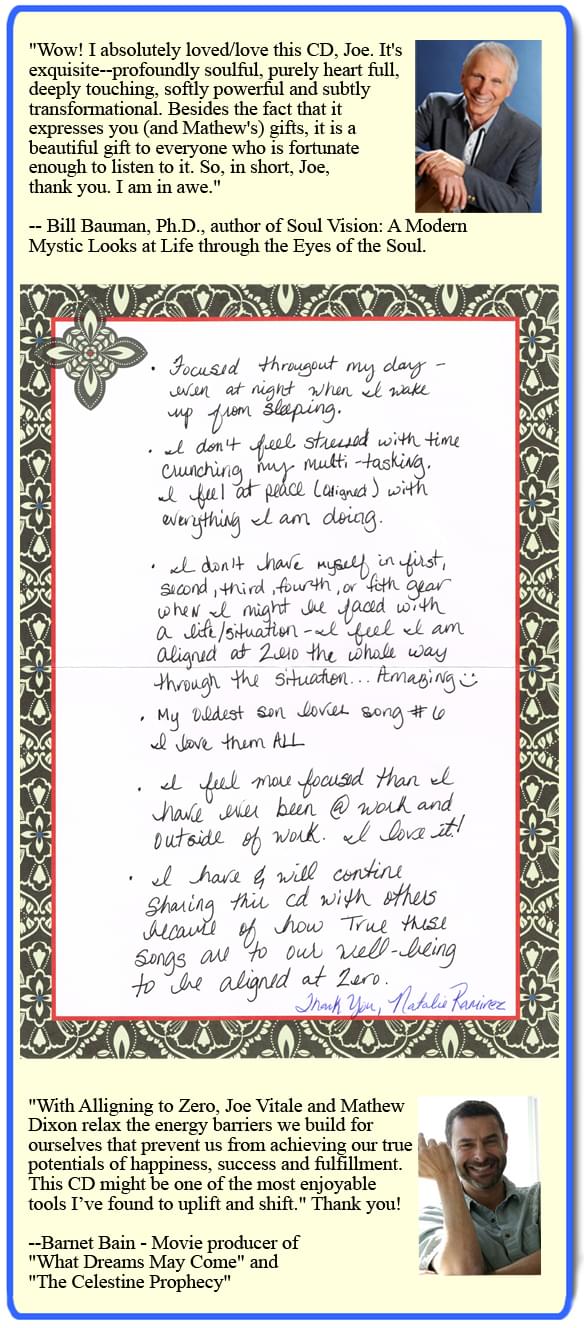 "Wow! I absolutely loved/love this CD, Joe. It's
exquisite--profoundly soulful, purely heart full,
deeply touching, softly powerful and subtly
transformational. Besides the fact that it
expresses you (and Mathew's) gifts, it is a
beautiful gift to everyone who is fortunate
enough to listen to it. So, in short, Joe,
thank you. I am in awe."
-- Bill Bauman, Ph.D., author of Soul Vision: A Modern
Mystic Looks at Life through the Eyes of the Soul.
• Focused througout my day -
even at night when I wake
up from sleeping.
• I don't feel stressed with time
crunching my multi-tasking.
I feel at peace (aligned) with
everything I am doing.
• I don't have myself in first,
second, third, fourth, or fith gear
when I might be faced with
a life/situation - I feel I am
aligned at Zero the whole way
through the situation... Amazing :)
• My oldest son loves song #6
I love them ALL
• I feel more focused than I
have ever been @ work and
outside of work. I love it!
• I have & will contine
sharing this cd with others
because of how True these
songs are to our well-being
to be aligned at Zero.
Thank You, Natalie Ramirez
"With Alligning to Zero, Joe Vitale and Mathew
Dixon relax the energy barriers we build for
ourselves that prevent us from achieving our true
potentials of happiness, success and fulfillment.
This CD might be one of the most enjoyable
tools I’ve found to uplift and shift." Thank you!
--Barnet Bain - Movie producer of
"What Dreams May Come" and
"The Celestine Prophecy"